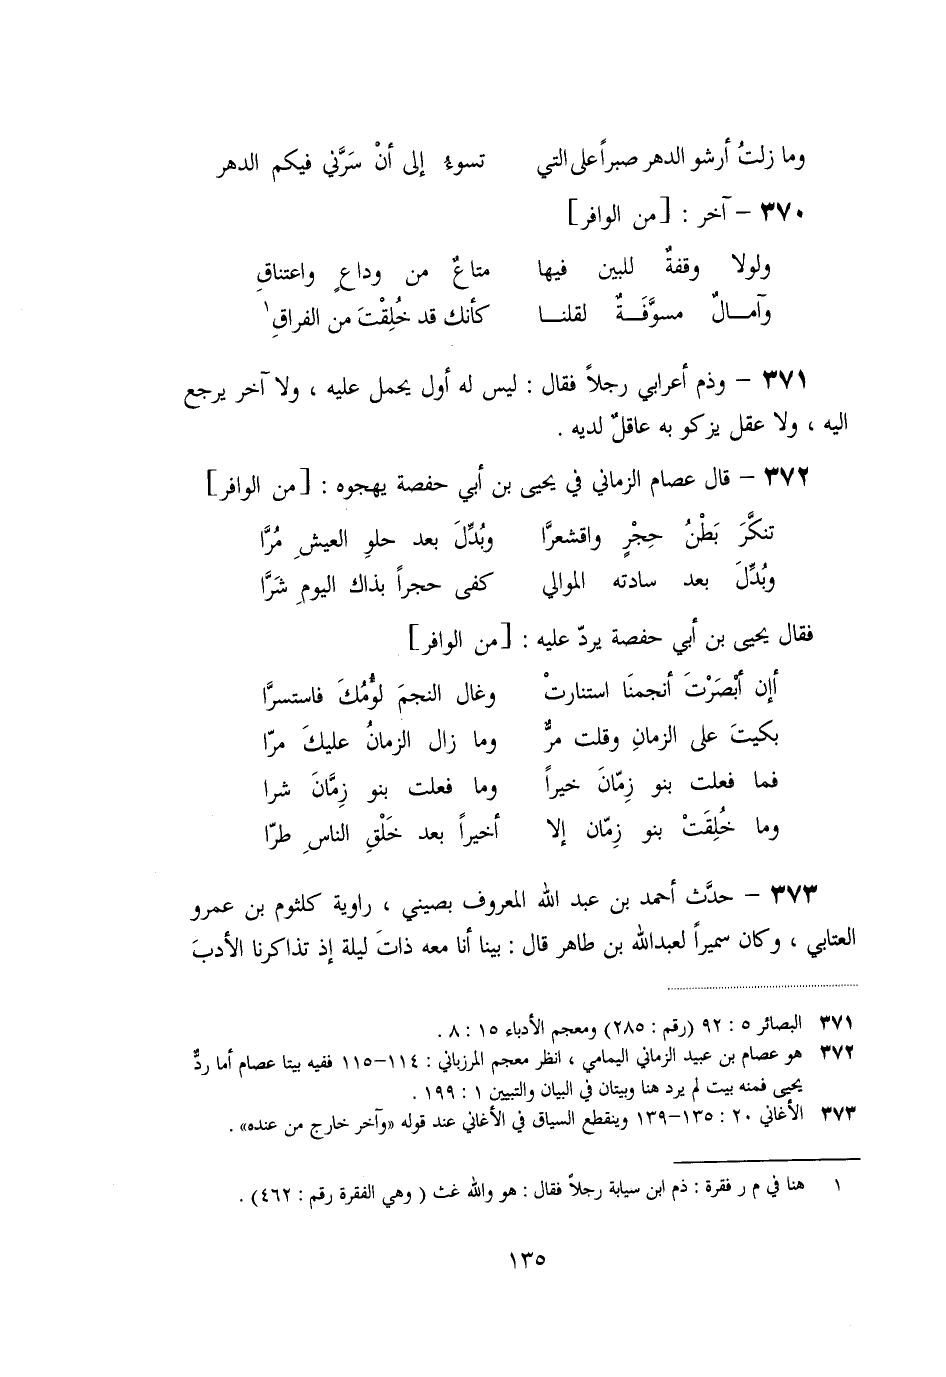 وما زلتُ أرشو الدهر صبراً على التي تسوءُ إلى أنْ سَرَّني فيكم الدهر
٣٧٠ – آخر : [من الوافر]
ولولا وقفةٌ للبين فيها متاعٌ من وداعٍ واعتناقِ
وآمـــالٌ مسوَّفَـــةٌ لقلنـــا كأنك قد خُلِقْتَ من الفراقِ١
٣٧١ – وذم أعرابي رجلاً فقال : ليس له أول يحمل عليه ، ولا آخر يرجع
اليه ، ولا عقل يزكو به عاقلٌ لديه .
٣٧٢ – قال عصام الزماني في يحيى بن أبي حفصة يهجوه : [من الوافر]
تنكَّرَ بَطْنُ حِجْرٍ واقشعرَّا وبُدِّلَ بعد حلوِ العيشِ مُرَّا
وبُدِّلَ بعد سادته الموالي كفى حجراً بذاك اليومِ شَرَّا
فقال يحيى بن أبي حفصة يردّ عليه : [من الوافر]
أإن أبْصَرْتَ أنجمنَا استنارتْ وغال النجمَ لؤْمُكَ فاستسرَّا
بكيتَ على الزمانِ وقلت مرٌّ وما زال الزمانُ عليكَ مرّا
فما فعلت بنو زِمّانَ خيراً وما فعلت بنو زِمَّانَ شرا
وما خُلِقَتْ بنو زِمّان إلا أخيراً بعد خَلْقِ الناسِ طرّا
٣٧٣ – حدَّث أحمد بن عبد الله المعروف بصيني ، راوية كلثوم بن عمرو
العتابي ، وكان سميراً لعبدالله بن طاهر قال : بينا أنا معه ذاتَ ليلة إذ تذاكرنا الأدبَ
٣٧١ البصائر ٥ : ٩٢ (رقم : ٢٨٥) ومعجم الأدباء ١٥ : ٨ .
٣٧٢ هو عصام بن عبيد الزماني اليمامي ، انظر معجم المرزباني : ١١٤–١١٥ ففيه بيتا عصام أما ردُّ
يحيى فمنه بيت لم يرد هنا وبيتان في البيان والتبيين ١ : ١٩٩ .
٣٧٣ الأغاني ٢٠ : ١٣٥–١٣٩ وينقطع السياق في الأغاني عند قوله «وآخر خارج من عنده» .
١ هنا في م ر فقرة : ذم ابن سيابة رجلاً فقال : هو والله غث ( وهي الفقرة رقم : ٤٦٢) .
١٣٥